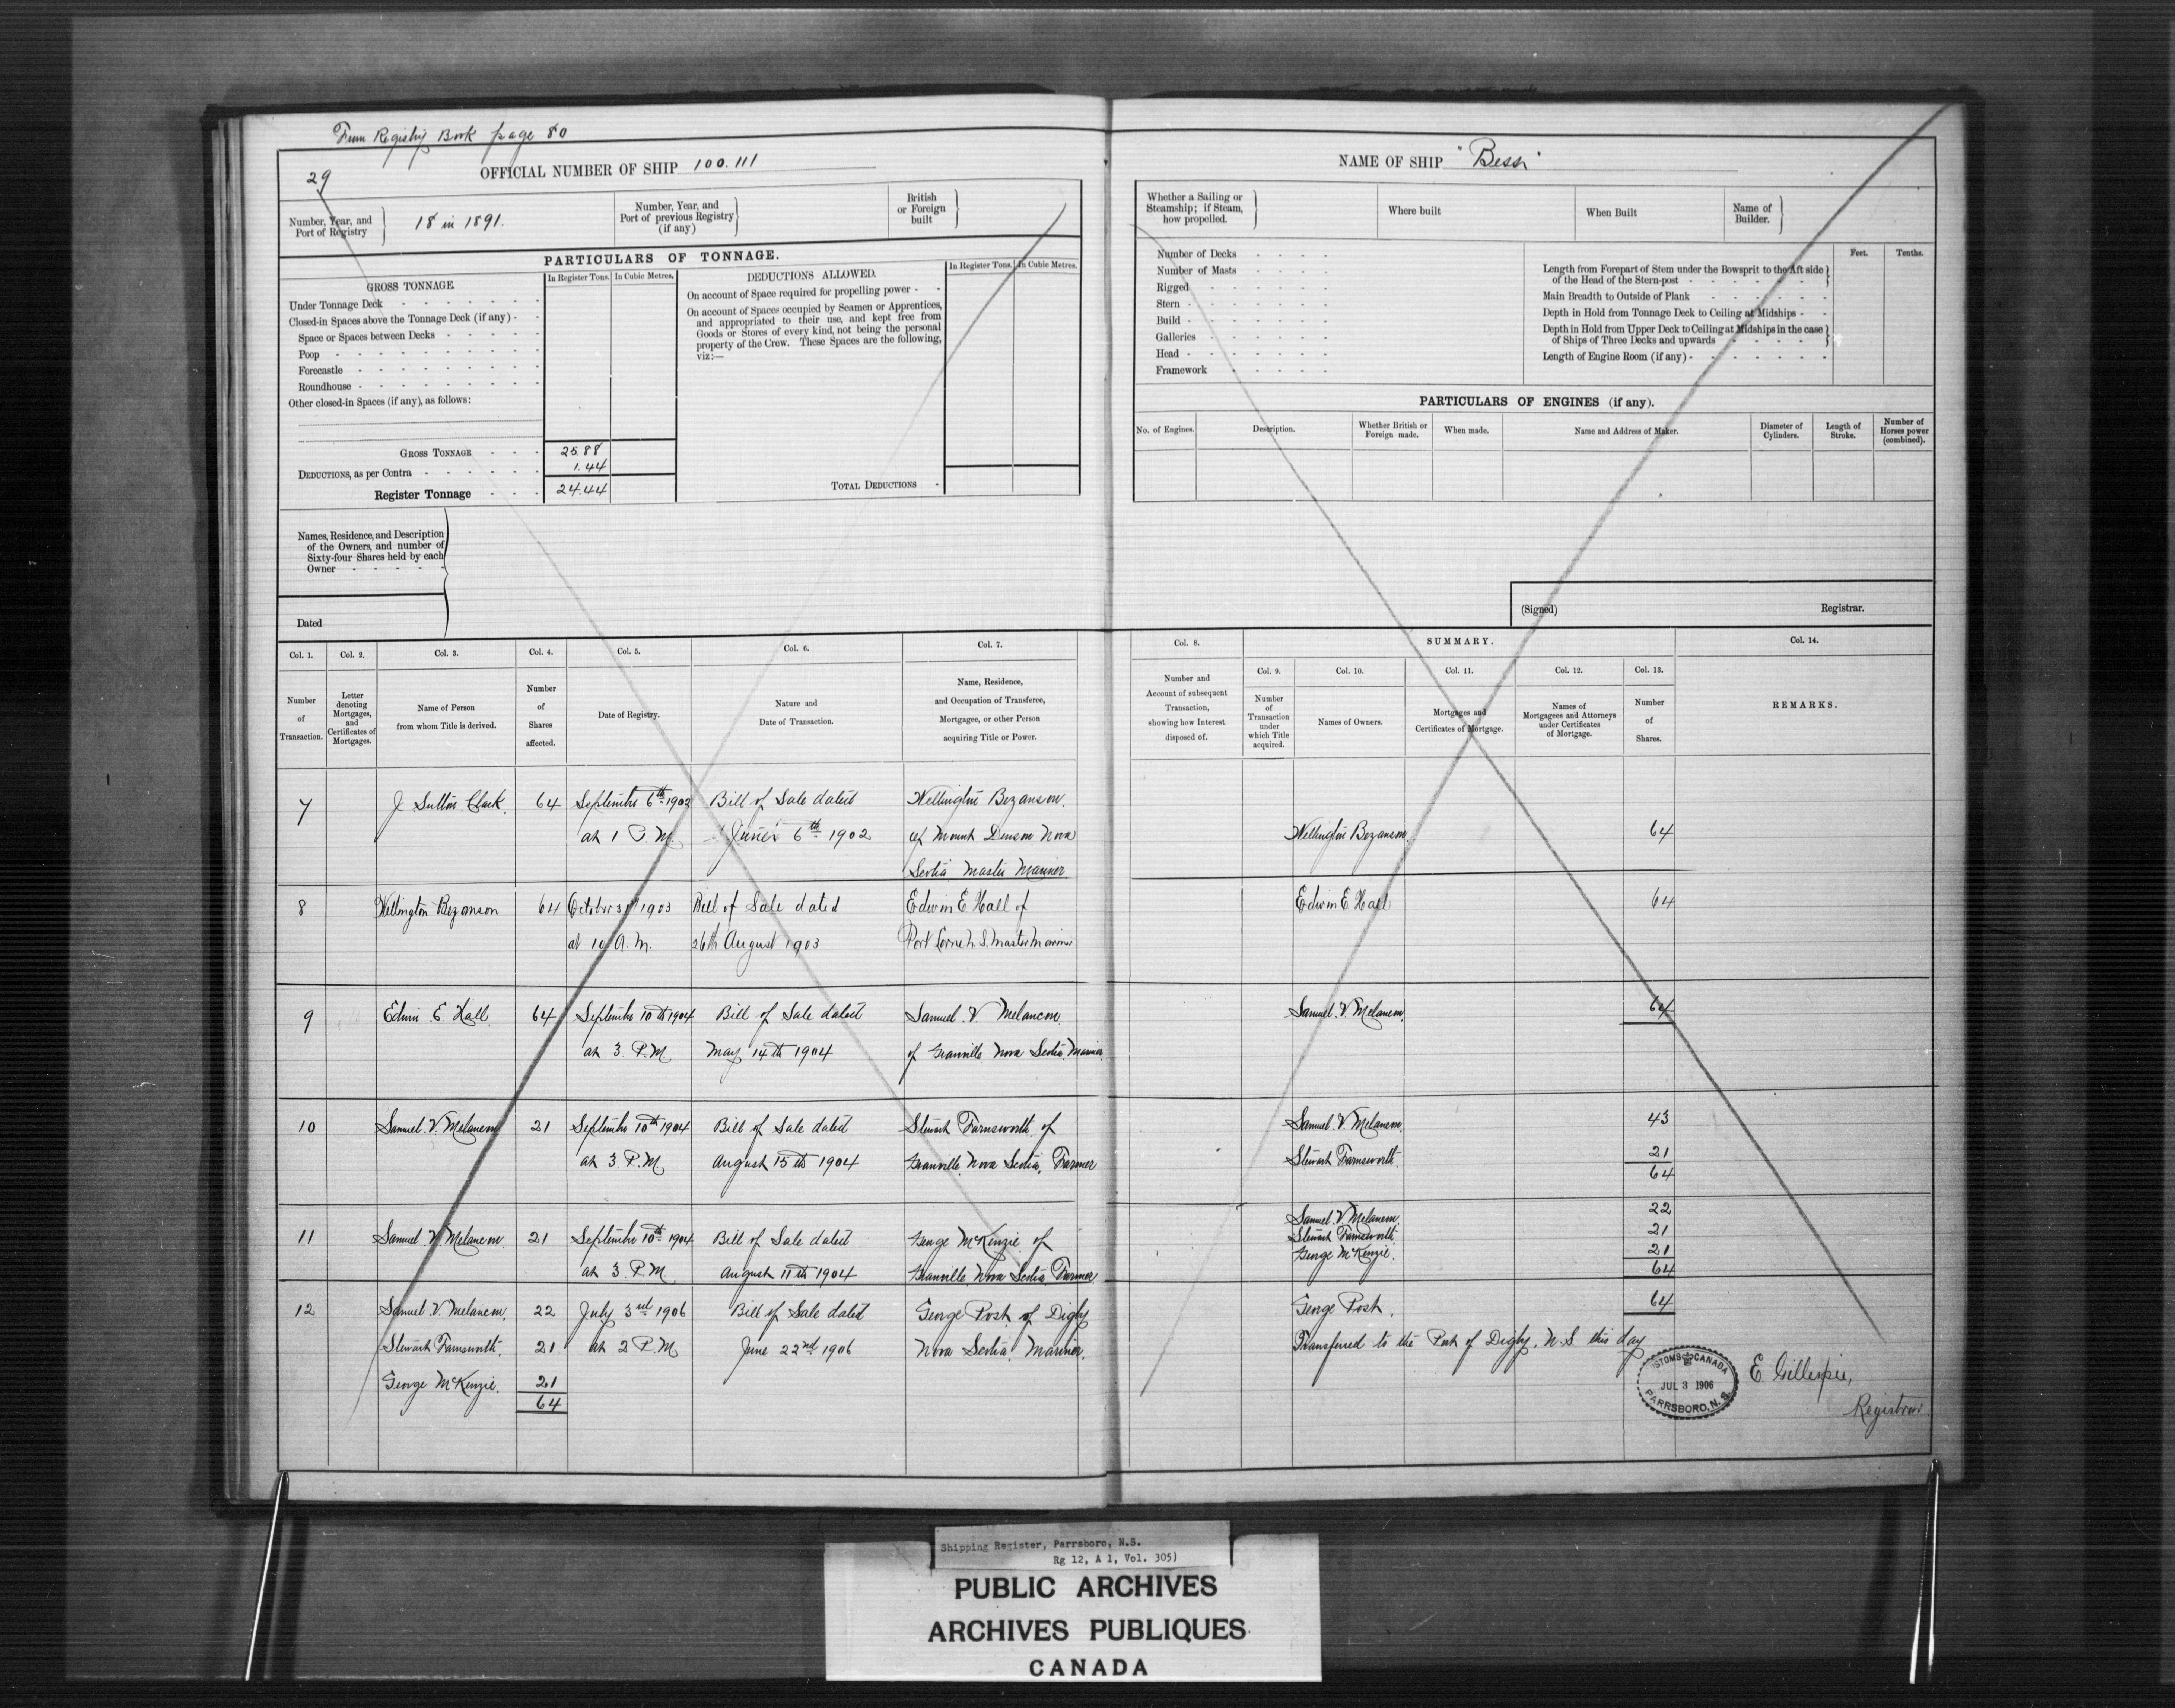 From Registry Book page 80
29
OFFICIAL NUMBER OF SHIP 100.111
Number, Year, and Port of Registry
18 in 1891.
Number, Year, and Port of previous Registry (if any)
British or Foreign built
PARTICULARS OF TONNAGE.
GROSS TONNAGE
In Register Tons.
In Cubic Metres.
DEDUCTIONS ALLOWED.
In Register Tons.
In Cubic Metres.
Under Tonnage Deck
Closed-in Spaces above the Tonnage Deck (if any)
Space or Spaces between Decks
Poop
Forecastle
Roundhouse
Other closed-in Spaces (if any), as follows:
On account of Space required for propelling power
On account of Spaces occupied by Seamen or Apprentices,
and appropriated to their use, and kept free from
Goods or Stores of every kind, not being the personal
property of the Crew. These Spaces are the following,
viz:—
GROSS TONNAGE 25.88
DEDUCTIONS, as per Contra 1.44
Register Tonnage 24.44
TOTAL DEDUCTIONS
Names, Residence, and Description
of the Owners, and number of
Sixty-four Shares held by each
Owner
Dated
NAME OF SHIP
Whether a Sailing or Steamship; if Steam, how propelled.
Where built
When Built
Name of Builder.
Number of Decks
Number of Masts
Rigged
Stern
Build
Galleries
Head
Framework
Feet.
Tenths.
Length from Forepart of Stem under the Bowsprit to the Aft side
of the Head of the Stern-post
Main Breadth to Outside of Plank
Depth in Hold from Tonnage Deck to Ceiling at Midships
Depth in Hold from Upper Deck to Ceiling at Midships in the case
of Ships of Three Decks and upwards
Length of Engine Room (if any)
PARTICULARS OF ENGINES (if any).
No. of Engines.
Description.
Whether British or Foreign made.
When made.
Name and Address of Maker.
Diameter of Cylinders.
Length of Stroke.
Number of Horses power (combined).
(Signed)
Registrar.
Col. 1.
Col. 2.
Col. 3.
Col. 4.
Col. 5.
Col. 6.
Col. 7.
Number of Transaction.
Letter denoting Mortgages, and Certificates of Mortgages.
Name of Person from whom Title is derived.
Number of Shares affected.
Date of Registry.
Nature and Date of Transaction.
Name, Residence, and Occupation of Transferee, Mortgagee, or other Person acquiring Title or Power.
Col. 8.
SUMMARY.
Col. 14.
Col. 9.
Col. 10.
Col. 11.
Col. 12.
Col. 13.
Number and Account of subsequent Transaction, showing how Interest disposed of.
Number of Transaction under which Title acquired.
Names of Owners.
Mortgages and Certificates of Mortgage.
Names of Mortgagees and Attorneys under Certificates of Mortgage.
Number of Shares.
REMARKS.
7 J. Sutton Clark. 64 September 6th 1902 Bill of Sale dated Wellington Bezanson
at 1 P.M. June 6th 1902 of Mount Denson Nova
Scotia Master Mariner
Wellington Bezanson 64
8 Wellington Bezanson 64 October 31st 1903 Bill of Sale dated Edwin E. Hall of
at 10 A.M. 26th August 1903 Port Lorne N.S. Master Mariner
Edwin E. Hall 64
9 Edwin E. Hall 64 September 10th 1904 Bill of Sale dated Samuel V. Melancon
at 3 P.M. May 14th 1904 of Granville Nova Scotia Mariner
Samuel V. Melancon 64
10 Samuel V. Melancon 21 September 10th 1904 Bill of Sale dated Stewart Farnsworth of
at 3 P.M. August 15th 1904 Granville Nova Scotia, Farmer
Samuel V. Melancon 43
Stewart Farnsworth 21
64
11 Samuel V. Melancon 21 September 10th 1904 Bill of Sale dated George McKenzie of
at 3 P.M. August 11th 1904 Granville Nova Scotia Farmer
Samuel V. Melancon 22
Stewart Farnsworth 21
George McKenzie. 21
64
12 Samuel V. Melancon. 22 July 3rd 1906 Bill of Sale dated George Post of Digby
Stewart Farnsworth. 21 at 2 P.M June 22nd 1906 Nova Scotia, Mariner.
George McKenzie. 21
64
George Post. 64
Transferred to the Port of Digby, N.S. this day
CUSTOMS CANADA
JUL 3 1906
PARRSBORO, N.S.
E. Gillespie,
Registrar
Shipping Register, Parrsboro, N.S.
Rg 12, A 1, Vol. 305)
PUBLIC ARCHIVES
ARCHIVES PUBLIQUES
CANADA